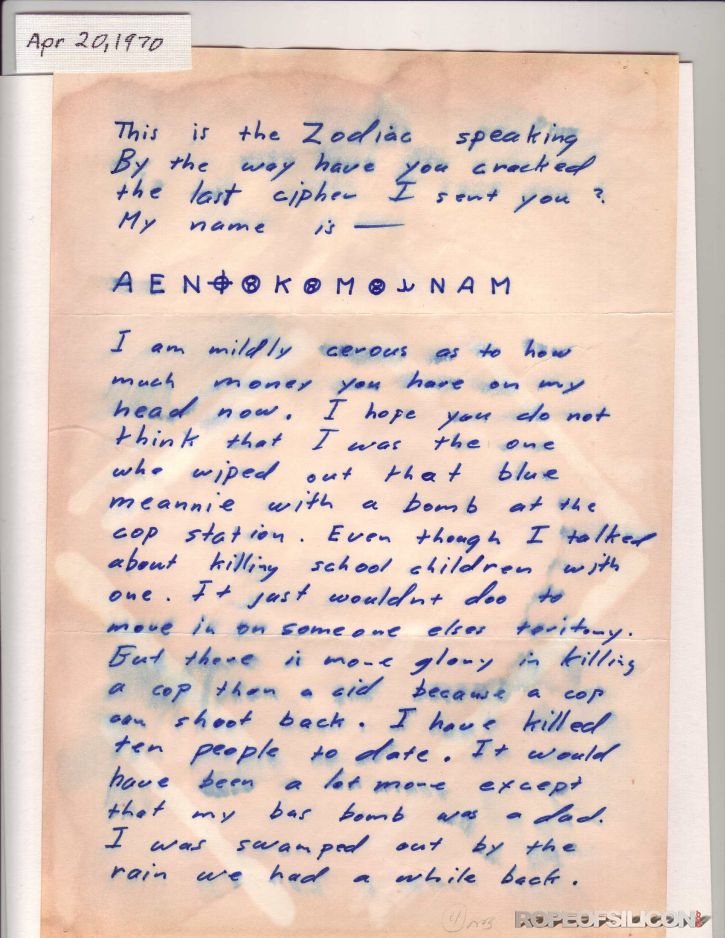 Apr 20, 1970
This is the Zodiac speaking
By the way have you cracked
the last cipher I sent you ?
My name is —
A E N ⌖ ⊗ K ⊗ M ⊗ ⅃ N A M
I am mildly cerous as to how
much money you have on my
head now. I hope you do not
think that I was the one
who wiped out that blue
meannie with a bomb at the
cop station. Even though I talked
about killing school children with
one. It just wouldnt doo to
move in on someone elses teritory.
But there is more glory in killing
a cop than a cid because a cop
can shoot back. I have killed
ten people to date. It would
have been a lot more except
that my bus bomb was a dud.
I was swamped out by the
rain we had a while back.
ROPEOFSILICON